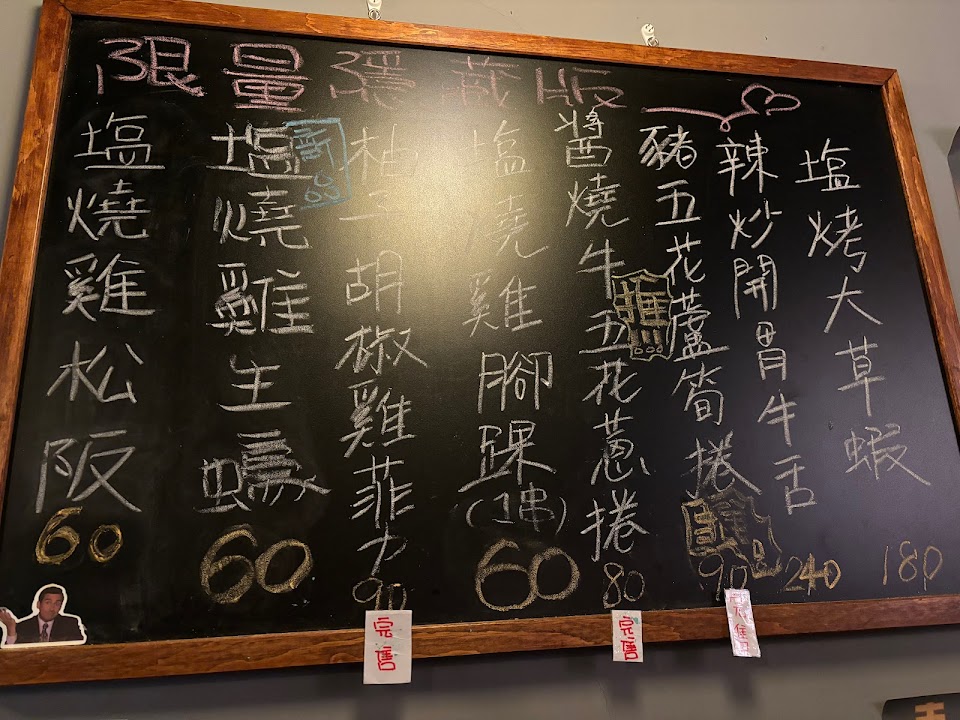 限量隱藏版
塩燒雞松阪
60
新品
塩燒雞生蠔
60
柚子胡椒雞菲力
90
完售
塩燒雞腳踝(1串)
60
推
醬燒牛五花蔥捲
80
完售
豬五花蘆筍捲
90
完售
辣炒開胃牛舌
240
塩烤大草蝦
180